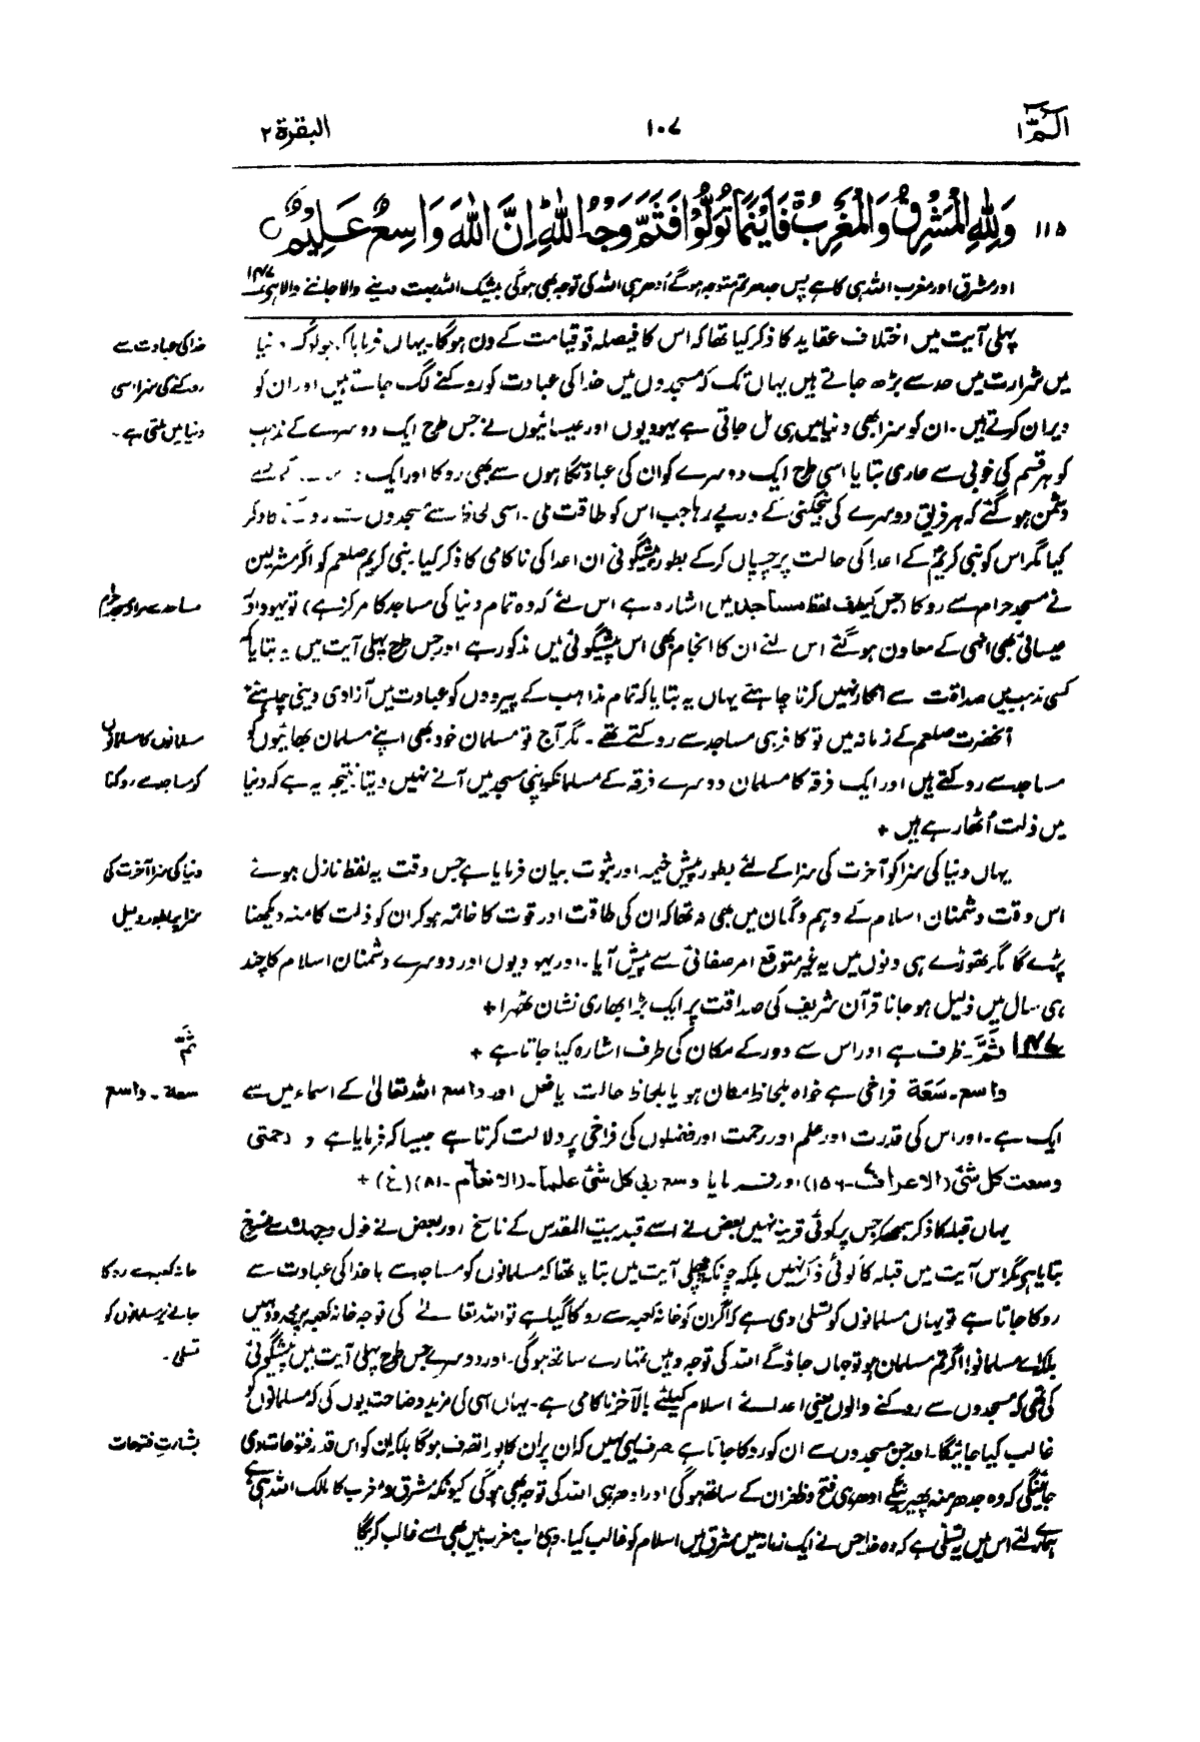 الٓمّٓ ۱
۱۰۷
البقرة ۲
۱۱۵ وَلِلّٰهِ الْمَشْرِقُ وَالْمَغْرِبُ فَاَيْنَمَا تُوَلُّوْا فَثَمَّ وَجْهُ اللّٰهِ اِنَّ اللّٰهَ وَاسِعٌ عَلِيْمٌ
اور مشرق اور مغرب اللہ ہی کا ہے پس جدھر تم متوجہ ہوگے اُدھر ہی اللہ کی توجہ بھی ہوگی بیشک اللہ بہت دینے والا جاننے والا ہے ۱۴۷
پہلی آیت میں اختلاف عقاید کا ذکر کیا تھا کہ اس کا فیصلہ تو قیامت کے دن ہوگا۔ یہاں فرمایا کہ جو لوگ دنیا
خدا کی عبادت سے
میں شرارت میں حد سے بڑھ جاتے ہیں یہاں تک کہ مسجدوں میں خدا کی عبادت کو روکنے لگ جاتے ہیں اور ان کو
روکنے کی سزا اسی
ویران کرتے ہیں۔ ان کو سزا بھی دنیا میں ہی مل جاتی ہے یہودیوں اور عیسائیوں نے جس طرح ایک دوسرے کے مذہب
دنیا میں ملتی ہے۔
کو ہر قسم کی خوبی سے عاری بتایا اسی طرح ایک دوسرے کو ان کی عبادتگاہوں سے بھی روکا اور ایک
دشمن ہوگئے کہ ہر فریق دوسرے کی بیخکنی کے درپے رہا جب اس کو طاقت ملی۔ اسی لحاظ سے مسجدوں سے روکنے کا ذکر
کیا مگر اس کو نبی کریمؐ کے اعدا کی حالت پر چسپاں کرکے بطور پیشگوئی ان اعدا کی ناکامی کا ذکر کیا۔ نبی کریم صلعم کو اگر مشرکین
نے مسجد حرام سے روکا (جس کیطرف لفظ مساجد میں اشارہ ہے اس لئے کہ وہ تمام دنیا کی مساجد کا مرکز ہے) تو یہود اور
مساجد سے مراد مسجد حرام
عیسائی بھی انہی کے معاون ہوگئے اس لئے ان کا انجام بھی اس پیشگوئی میں مذکور ہے اور جس طرح پہلی آیت میں یہ بتایا کہ
کسی مذہب میں صداقت سے انکار نہیں کرنا چاہئے یہاں یہ بتایا کہ تمام مذاہب کے پیرووں کو عبادت میں آزادی دینی چاہئے+
آنحضرت صلعم کے زمانہ میں تو کافر ہی مساجد سے روکتے تھے۔ مگر آج تو مسلمان خود بھی اپنے مسلمان بھائیوں کو
مسلمانوں کا مسلمانوں
مساجد سے روکتے ہیں اور ایک فرقہ کا مسلمان دوسرے فرقہ کے مسلمان کو اپنی مسجد میں آنے نہیں دیتا نتیجہ یہ ہے کہ دنیا
کو مساجد سے روکنا
میں ذلت اُٹھا رہے ہیں +
یہاں دنیا کی سزا کو آخرت کی سزا کے لئے بطور پیش خیمہ اور ثبوت بیان فرمایا ہے جس وقت یہ لفظ نازل ہوئے
دنیا کی سزا آخرت کی
اس وقت دشمنان اسلام کے وہم وگمان میں بھی نہ تھا کہ ان کی طاقت اور قوت کا خاتمہ ہوکر ان کو ذلت کا منہ دیکھنا
سزا پر بطور دلیل
پڑے گا مگر تھوڑے ہی دنوں میں یہ غیر متوقع امر صفائی سے پیش آیا۔ اور یہودیوں اور دوسرے دشمنان اسلام کا چند
ہی سال میں ذلیل ہوجانا قرآن شریف کی صداقت پر ایک بڑا بھاری نشان ٹھہرا +
۱۴۷ ثَمَّ۔ ظرف ہے اور اس سے دور کے مکان کی طرف اشارہ کیا جاتا ہے +
ثَمَّ
واسع۔ سَعَة فراخی ہے خواہ بلحاظ مکان ہو یا بلحاظ حالت یا فعل اور واسع اللہ تعالیٰ کے اسماء میں سے
سعة۔ واسع
ایک ہے۔ اور اس کی قدرت اور علم اور رحمت اور فضلوں کی فراخی پر دلالت کرتا ہے جیسا کہ فرمایا ہے و رحمتی
وسعت کل شئ (الاعراف۔۱۵۶) اور فرمایا وسع ربی کل شئ علما۔ (الانعام۔۸۱) (غ) +
یہاں قبلہ کا ذکر سمجھ کر جس پر کوئی قرینہ نہیں بعض نے اسے قبلہ بیت المقدس کے ناسخ اور بعض نے فول وجھک سے منسوخ
بتایا ہے مگر اس آیت میں قبلہ کا کوئی ذکر نہیں بلکہ چونکہ پچھلی آیت میں بتایا تھا کہ مسلمانوں کو مساجد سے یا خدا کی عبادت سے
خانہ کعبہ سے روکا
روکا جاتا ہے تو یہاں مسلمانوں کو تسلی دی ہے کہ اگر ان کو خانہ کعبہ سے روکا گیا ہے تو اللہ تعالےٰ کی توجہ خانہ کعبہ پر محدود نہیں
جانے پر مسلمانوں کو
بلکہ اے مسلمانو! اگر تم مسلمان ہو تو جہاں جاؤ گے اللہ کی توجہ وہیں تمہارے ساتھ ہوگی۔ اور دوسرے جس طرح پہلی آیت میں پیشگوئی
تسلی۔
کی تھی کہ مسجدوں سے روکنے والوں یعنی اعدائے اسلام کیلئے بالآخر ناکامی ہے۔ یہاں اسی کی مزید وضاحت یوں کی کہ مسلمانوں کو
غالب کیا جائیگا۔ اور جن مسجدوں سے ان کو روکا جاتا ہے صرف یہی نہیں کہ ان پر ان کا پورا تصرف ہوگا بلکہ ان کو اس قدر فتوحات دی
بشارت فتوحات
جائینگی کہ وہ جدھر منہ پھیرینگے ادھر ہی فتح وظفر ان کے ساتھ ہوگی اور ادھر ہی اللہ کی توجہ بھی ہوگی کیونکہ مشرق و مغرب کا مالک اللہ ہی ہے
ہمارے لئے اس میں یہ تسلی ہے کہ وہ خدا جس نے ایک زمانہ میں مشرق میں اسلام کو غالب کیا۔ وہی اب مغرب میں بھی اسے غالب کریگا